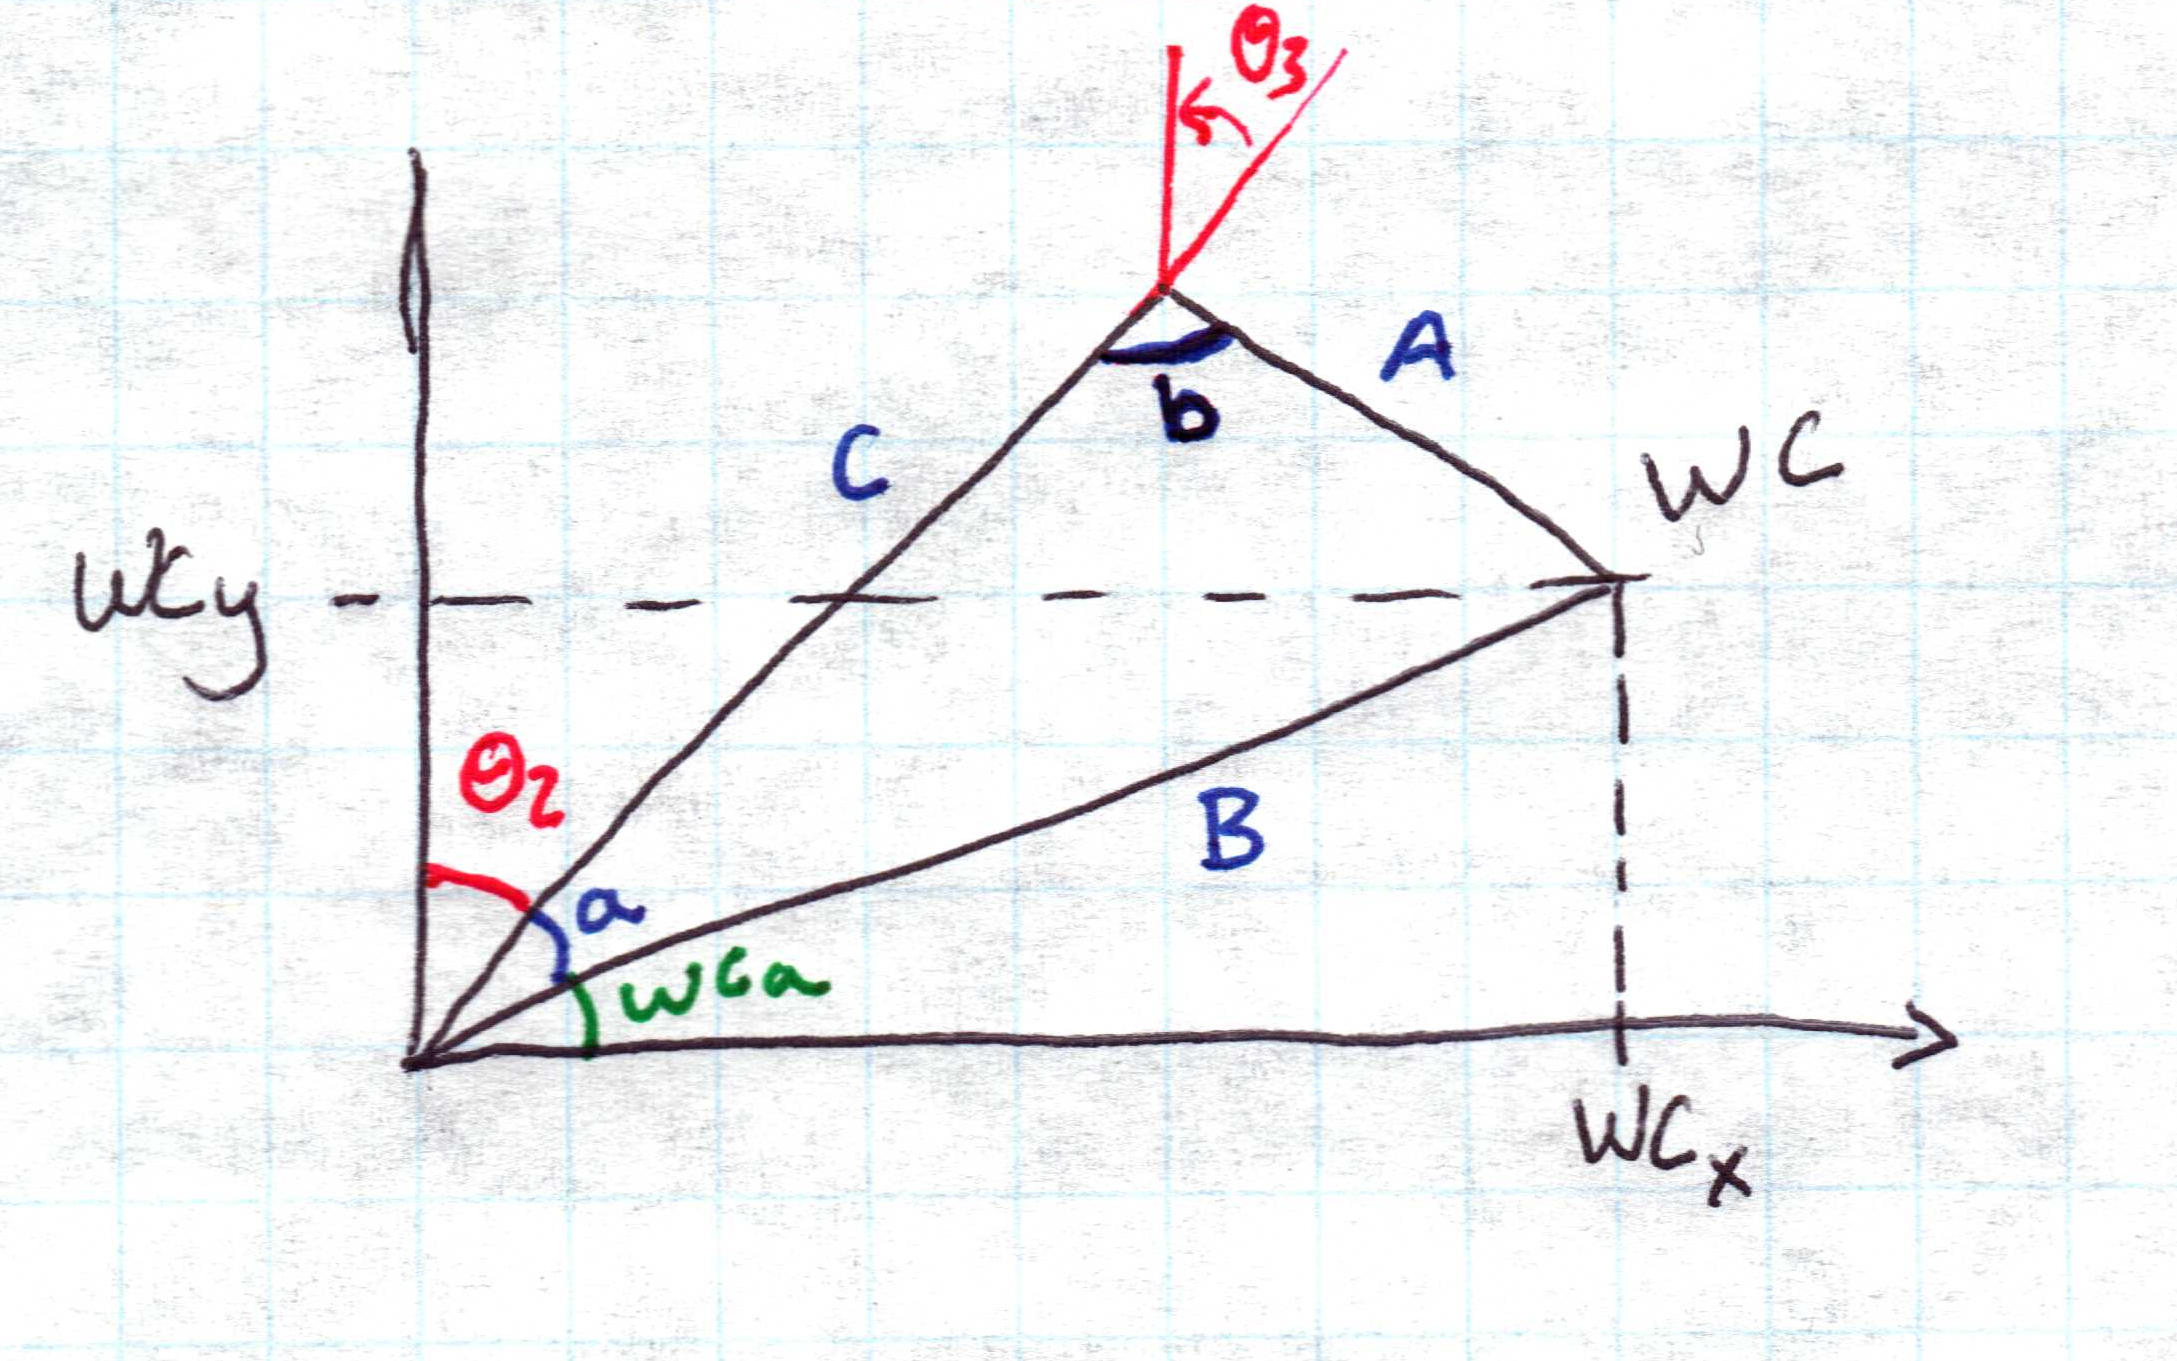 θ3
A
b
C
WC
WCy
θ2
B
a
WCa
WCx